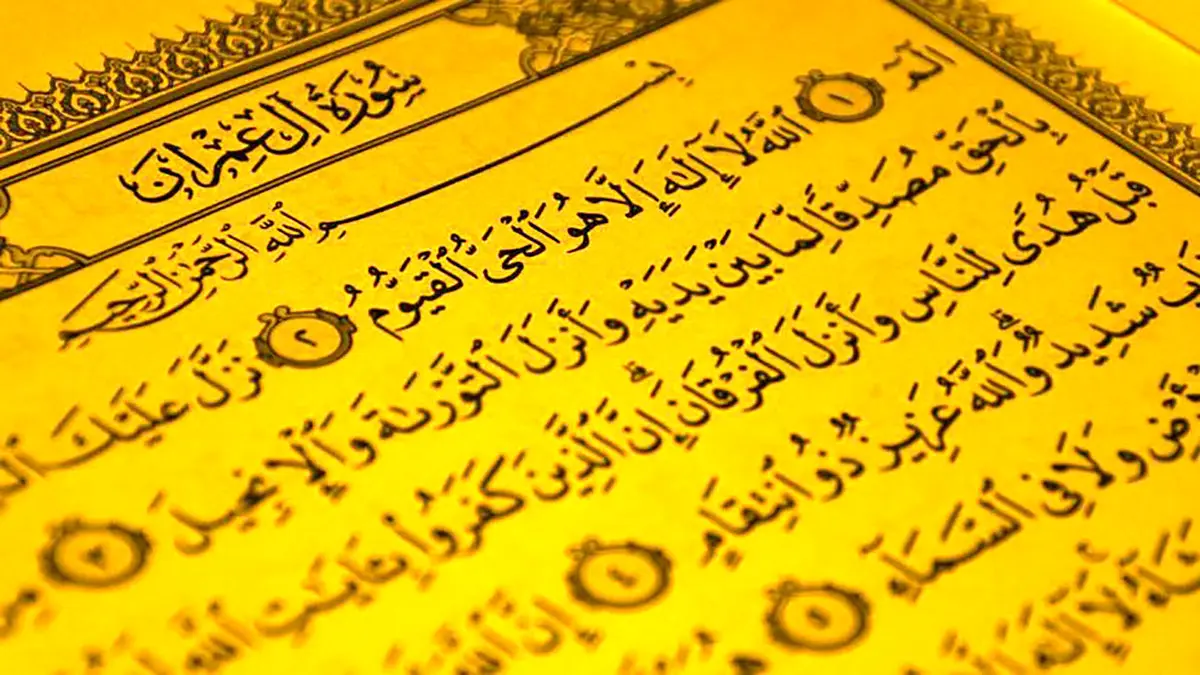 سُورَةُ آلِ عِمْرَانَ
بِسْمِ ٱللَّهِ ٱلرَّحْمَٰنِ ٱلرَّحِيمِ
الٓمٓ ١ ٱللَّهُ لَآ إِلَٰهَ إِلَّا هُوَ ٱلْحَىُّ ٱلْقَيُّومُ ٢ نَزَّلَ عَلَيْكَ
بِٱلْحَقِّ مُصَدِّقًا لِّمَا بَيْنَ يَدَيْهِ وَأَنزَلَ ٱلتَّوْرَىٰةَ وَٱلْإِنجِيلَ ٣
قَبْلُ هُدًى لِّلنَّاسِ وَأَنزَلَ ٱلْفُرْقَانَ ۗ إِنَّ ٱلَّذِينَ كَفَرُوا۟ بِـَٔايَٰتِ ٱللَّهِ
شَدِيدٌ ۗ وَٱللَّهُ عَزِيزٌ ذُو ٱنتِقَامٍ ٤ إِنَّ ٱللَّهَ
وَلَا فِى ٱلسَّمَآءِ ٥ هُوَ
لَآ إِلَٰهَ